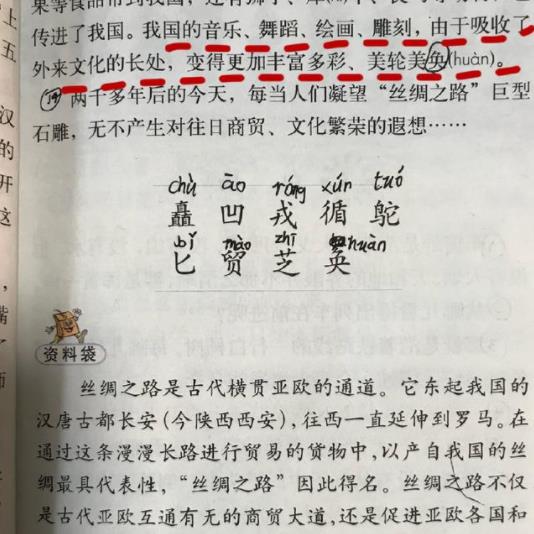 果等食品带到我国，还有狮子、
传进了我国。我国的音乐、舞蹈、绘画、雕刻，由于吸收了
外来文化的长处，变得更加丰富多彩、美轮美奂(huàn)。
⑭两千多年后的今天，每当人们凝望“丝绸之路”巨型
石雕，无不产生对往日商贸、文化繁荣的遐想……
chù āo róng xún tuó
矗 凹 戎 循 鸵
bǐ mào zhī huàn
匕 贸 芝 奂
资料袋
丝绸之路是古代横贯亚欧的通道。它东起我国的
汉唐古都长安(今陕西西安)，往西一直延伸到罗马。在
通过这条漫漫长路进行贸易的货物中，以产自我国的丝
绸最具代表性，“丝绸之路”因此得名。丝绸之路不仅
是古代亚欧互通有无的商贸大道，还是促进亚欧各国和